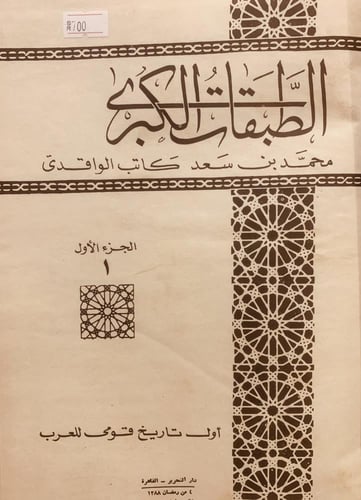 700
الطبقات الكبرى
محمد بن سعد كاتب الواقدى
الجزء الأول
١
أول تاريخ قومى للعرب
دار التحرير - القاهرة
٤ من رمضان ١٣٨٨